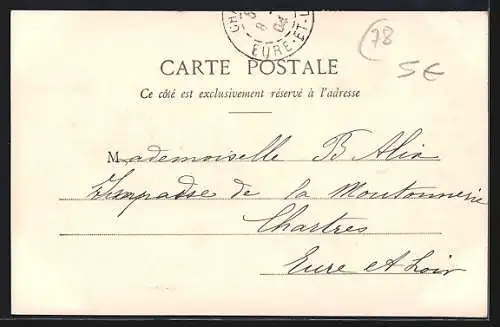 CH
EURE-ET-L
78
5€
CARTE POSTALE
Ce côté est exclusivement réservé à l'adresse
Mademoiselle B Alix
Impasse de la Moutonnerie
Chartres
Eure et Loir